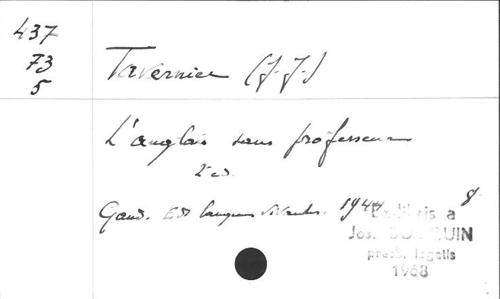 437
73
5
Tavernier (J-J-)
L'anglais sans professeur
2e ed.
Gand. Ed. langues vivantes. 8°
Ex-libris a
Jos.
presb. legatis
1968